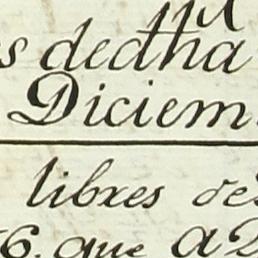 s dedha
Diciem
libres de
6. que a D